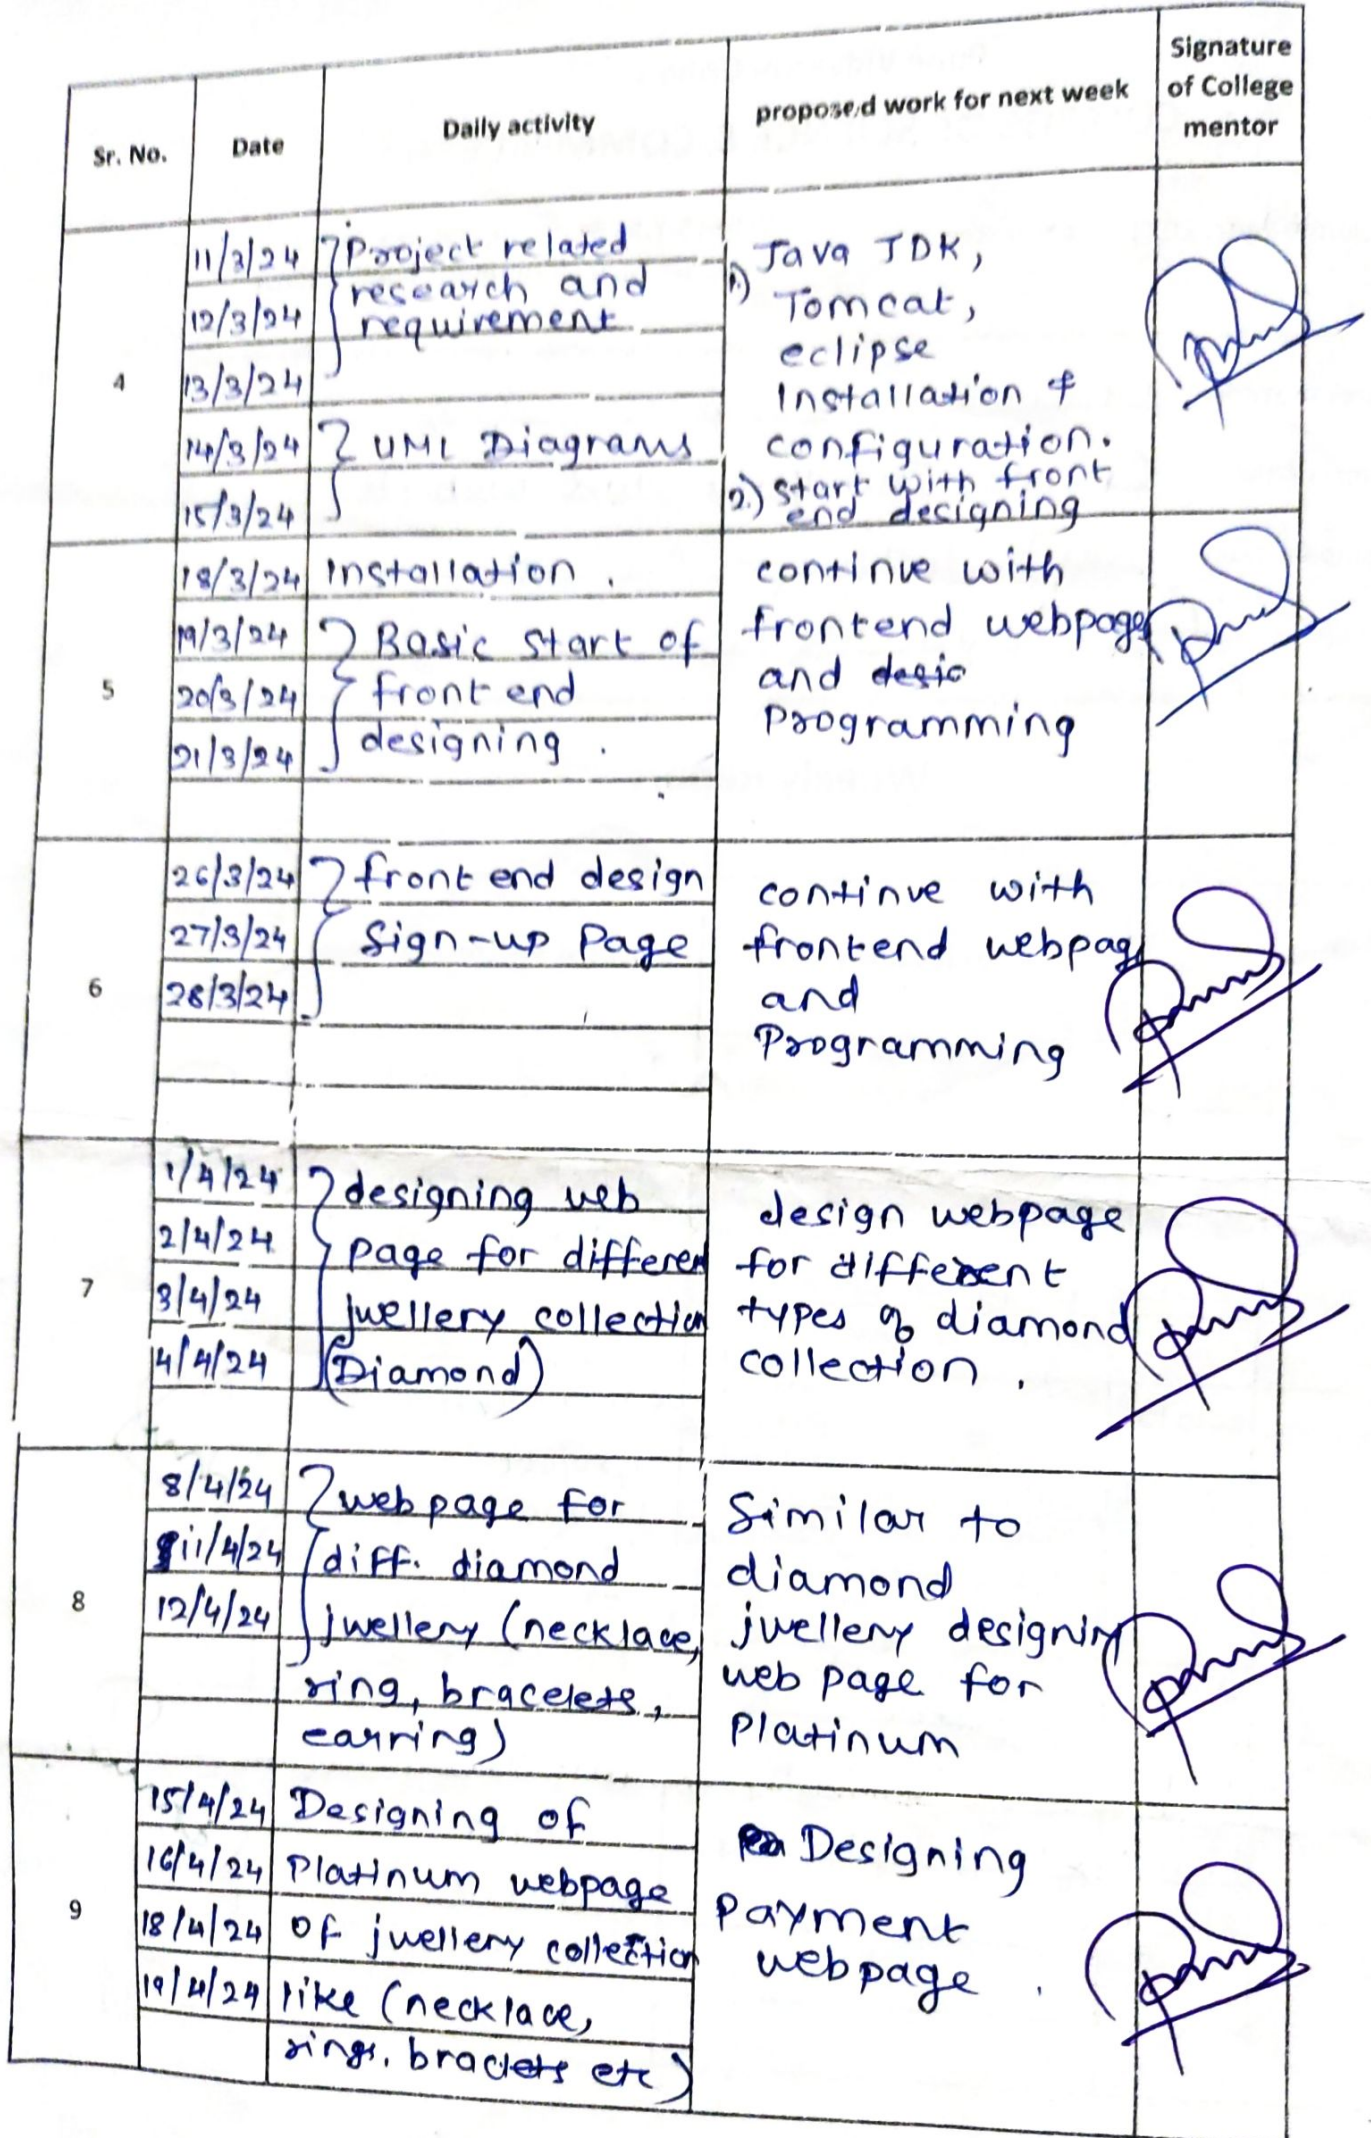 Sr. No.
Date
Daily activity
proposed work for next week
Signature
of College
mentor
4
11/3/24
12/3/24
13/3/24
14/3/24
15/3/24
Project related
research and
requirement
UML Diagrams
1) Java JDK,
Tomcat,
eclipse
Installation &
configuration.
2) Start with front
end designing
5
18/3/24
19/3/24
20/3/24
21/3/24
Installation.
Basic start of
front end
designing.
continue with
frontend webpage
and desic
Programming
6
26/3/24
27/3/24
28/3/24
front end design
Sign-up Page
continue with
frontend webpag
and
Programming
7
1/4/24
2/4/24
3/4/24
4/4/24
designing web
page for differen
jwellery collection
(Diamond)
design webpage
for different
types of diamond
collection.
8
8/4/24
11/4/24
12/4/24
web page for
diff. diamond
jwellery (necklace,
ring, bracelets,
earring)
Similar to
diamond
jwellery designing
web page for
Platinum
9
15/4/24
16/4/24
18/4/24
19/4/24
Designing of
Platinum webpage
of jwellery collection
like (necklace,
rings, braclets etc)
Designing
Payment
webpage.